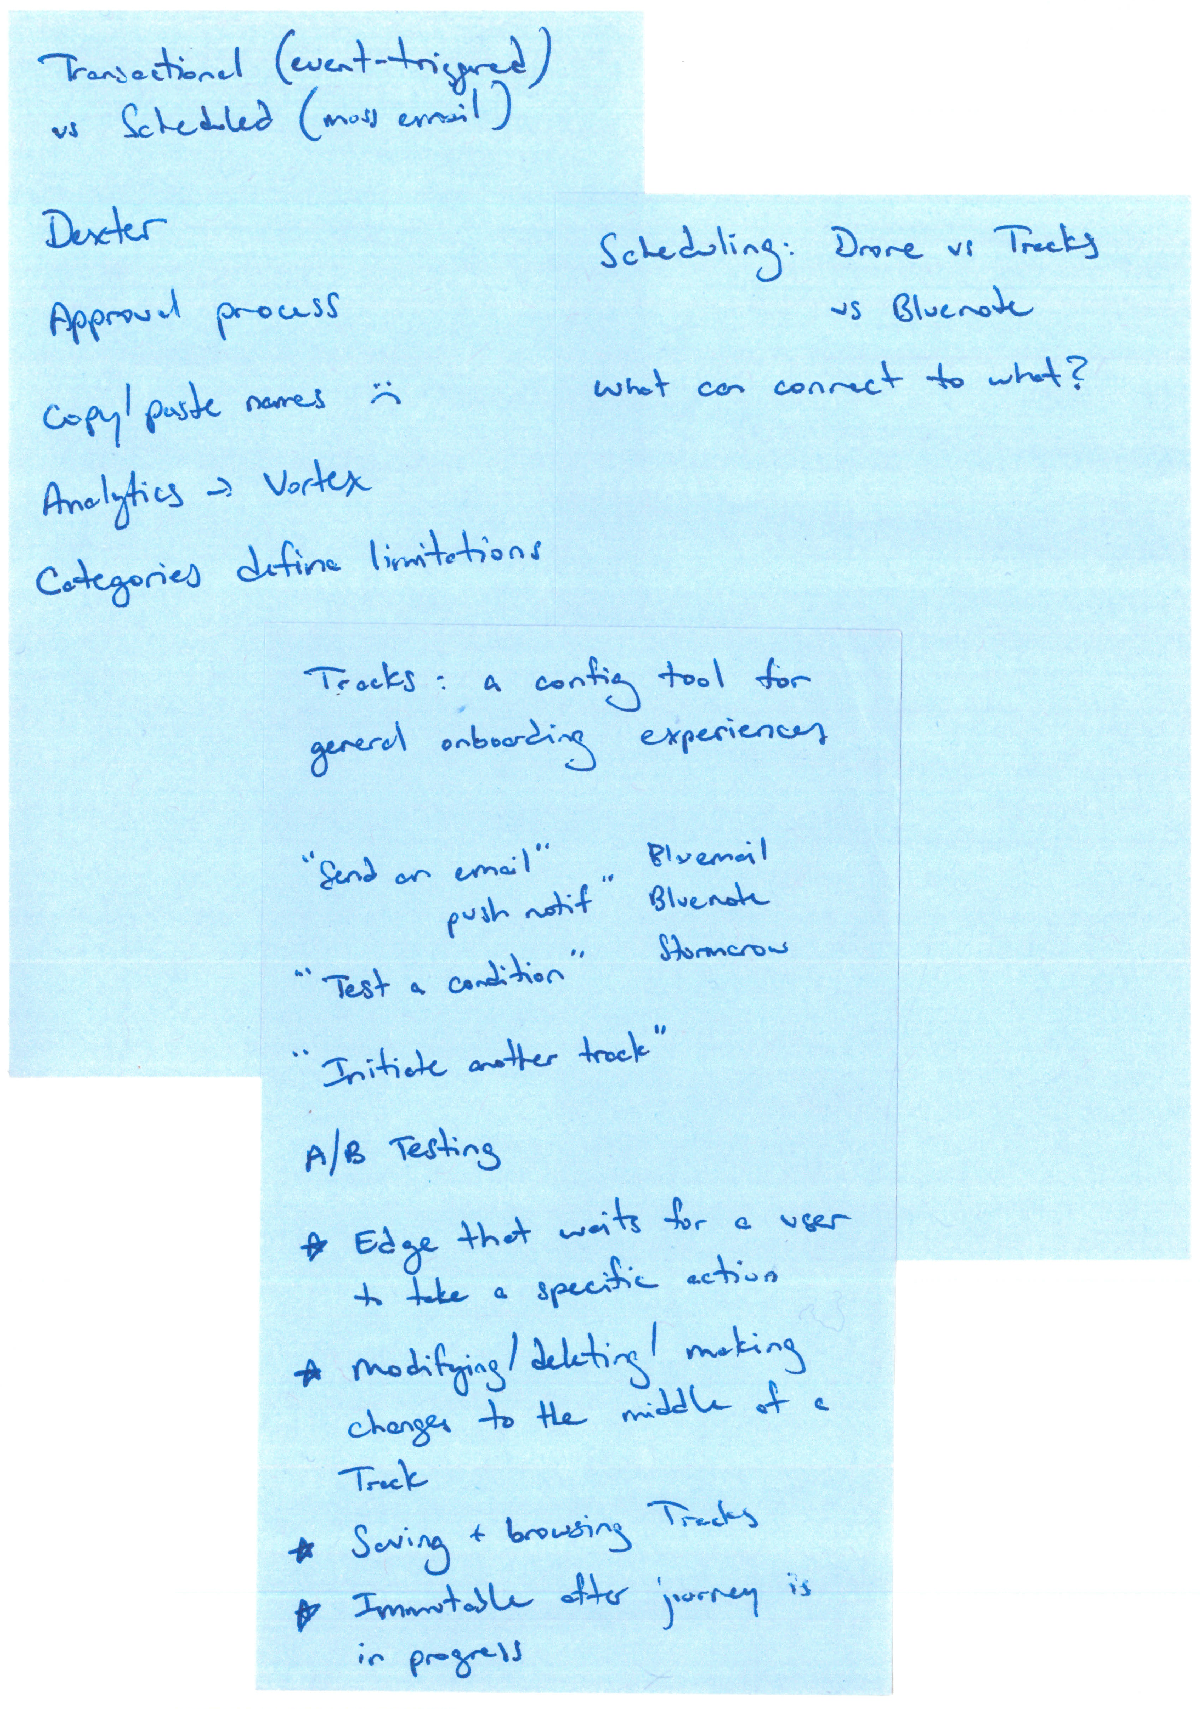 Transactional (event-triggered)
vs Scheduled (mass email)
Dexter
Approval process
Copy/paste names :(
Analytics → Vortex
Categories define limitations
Scheduling: Drone vs Tracks
vs Bluenote
what can connect to what?
Tracks: a config tool for
general onboarding experiences
"Send an email" Bluemail
push notif" Bluenote
Stormcrow
"Test a condition"
"Initiate another track"
A/B Testing
★ Edge that waits for a user
to take a specific action
★ modifying/deleting/making
changes to the middle of a
Track
★ Saving + browsing Tracks
★ Immutable after journey is
in progress